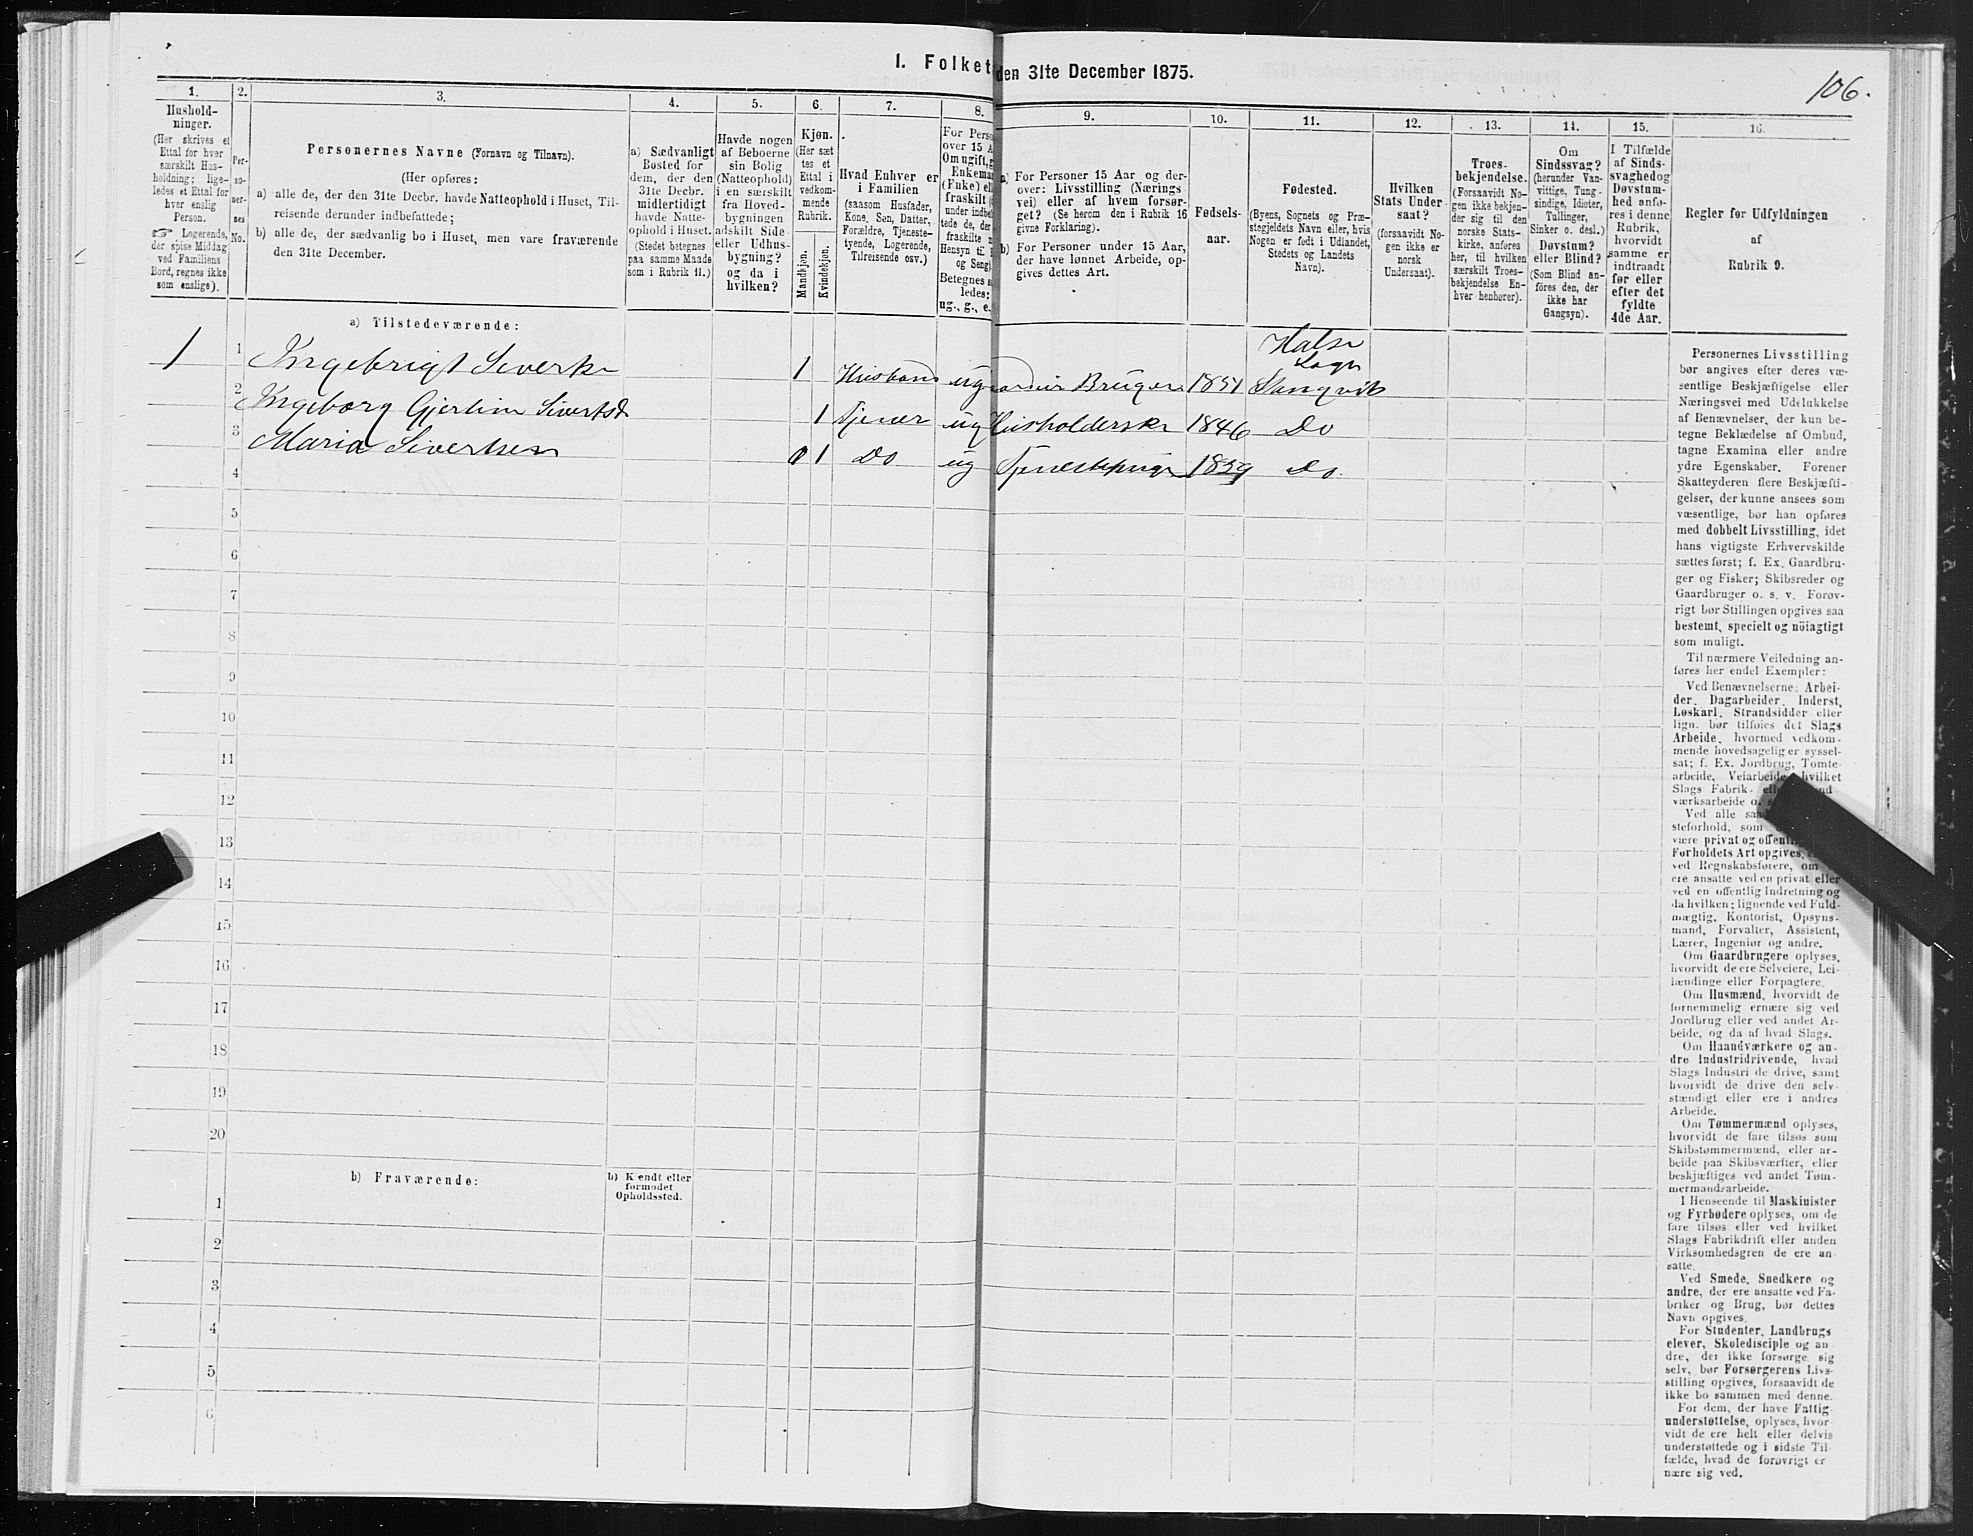 I. Folket
den 31te December 1875.
106.
1.
Hushold-
ninger.
(Her skrives et
Ettal for hver
særskilt Hus-
holdning; lige-
ledes et Ettal for
hver enslig
Person.
☞ Logerende,
der spise Middag
ved Familiens
Bord, regnes ikke
som enslige).
2.
Per-
so-
ner-
nes
No.
3.
Personernes Navne (Fornavn og Tilnavn).
(Her opføres:
a) alle de, der den 31te Decbr. havde Natteophold i Huset, Til-
reisende derunder indbefattede;
b) alle de, der sædvanlig bo i Huset, men vare fraværende
den 31te December.
4.
a) Sædvanligt
Bosted for
dem, der den
31te Decbr.
midlertidigt
havde Natte-
ophold i Huset.
(Stedet betegnes
paa samme Maade
som i Rubrik 11.)
5.
Havde nogen
af Beboerne
sin Bolig
(Natteophold)
i en særskilt
fra Hoved-
bygningen
adskilt Side-
eller Udhus-
bygning?
og da i
hvilken?
6.
Kjøn.
(Her sæt
tes et
Ettal i
vedkom-
mende
Rubrik.
Mandkjøn.
Kvindekjøn.
7.
Hvad Enhver er
i Familien
(saasom Husfader,
Kone, Søn, Datter,
Forældre, Tjeneste-
tyende, Logerende,
Tilreisende osv.)
8.
For Perso
over 15 A
Om ugift, g
Enkeman
(Enke) ell
fraskilt (
under indbe
tede de, der
fraskilte
Hensyn til
og Seng)
Betegnes s
ledes:
ug., g., e.
9.
a) For Personer 15 Aar og der-
over: Livsstilling (Nærings
vei) eller af hvem forsør-
get? (Se herom den i Rubrik 16
givne Forklaring).
b) For Personer under 15 Aar,
der have lønnet Arbeide, op-
gives dettes Art.
10.
Fødsels-
aar.
11.
Fødested.
(Byens, Sognets og Præ-
stegjeldets Navn eller, hvis
Nogen er født i Udlandet,
Stedets og Landets
Navn).
12.
Hvilken
Stats Under
saat?
(forsaavidt No-
gen ikke er
norsk
Undersaat).
13.
Troes-
bekjendelse.
(Forsaavidt No-
gen ikke bekjen-
der sig til den
norske Stats-
kirke, anføres
her, til hvilken
særskilt Troes-
bekjendelse En-
hver henhører).
14.
Om
Sindssvag?
(herunder Van-
vittige, Tung-
sindige, Idioter,
Tullinger,
Sinker o. desl.)
Døvstum?
eller Blind?
(Som Blind an-
føres den, der
ikke har
Gangsyn).
15.
I Tilfælde
af Sinds-
svaghed og
Døvstum-
hed anfø-
res i denne
Rubrik,
hvorvidt
samme er
indtraadt
før eller
efter det
fyldte
4de Aar.
16.
Regler for Udfyldningen
af
Rubrik 9.
a) Tilstedeværende:
1 1 Ingebrigt Siverts 1 Husbond ug Bruger 1851 Halse Sogn Stangvik
2 Ingeborg Gjertine Sivertsd 1 Tjener ug Husholderske 1846 Do
3 Maria Sivertsen 1 Do ug 1859 Do
4
5
6
7
8
9
10
11
12
13
14
15
16
17
18
19
20
b) Fraværende:
b) Kendt eller
formodet
Opholdssted.
1
2
3
4
5
6
Personernes Livsstilling
bør angives efter deres væ-
sentlige Beskjæftigelse eller
Næringsvei med Udelukkelse
af Benævnelser, der kun be-
tegne Beklædelse af Ombud,
tagne Examina eller andre
ydre Egenskaber. Forener
Skatteyderen flere Beskjæfti-
gelser, der kunne ansees som
væsentlige, bør han opføres
med dobbelt Livsstilling, idet
hans vigtigste Erhvervskilde
sættes først; f. Ex. Gaardbru-
ger og Fisker; Skibsreder og
Gaardbruger o. s. v. Forøv-
rigt bør Stillingen opgives saa
bestemt, specielt og nöiagtigt
som muligt.
Til nærmere Veiledning an-
føres her endel Exempler:
Ved Benævnelserne: Arbei-
der, Dagarbeider, Inderst,
Løskarl, Strandsidder eller
lign. bør tilføies det Slags
Arbeide, hvormed vedkom-
mende hovedsagelig er syssel-
sat; f. Ex. Jordbrug, Tomte-
arbeide, Veiarbeide, hvilket
Slags Fabrik-
værksarbeide o.
Ved alle
steforhold, som
være privat og
Forholdets Art opgives,
ved Regnskabsførere, om
ere ansatte ved en privat eller
ved en offentlig Indretning og
da hvilken; lignende ved Fuld-
mægtig, Kontorist, Opsyns-
mand, Forvalter, Assistent,
Lærer, Ingeniør og andre.
Om Gaardbrugere oplyses,
hvorvidt de ere Selveiere, Lei-
lændinge eller Forpagtere.
Om Husmænd, hvorvidt de
fornemmelig ernære sig ved
Jordbrug eller ved andet Ar-
beide, og da af hvad Slags.
Om Haandværkere og an-
dre Industridrivende, hvad
Slags Industri de drive, samt
hvorvidt de drive den selv-
stændigt eller ere i andres
Arbeide.
Om Tømmermænd oplyses,
hvorvidt de fare tilsøs som
Skibstømmermænd, eller ar-
beide paa Skibsværfter, eller
beskjæftiges ved andet Tøm-
mermandsarbeide.
I Henseende til Maskinister
og Fyrbødere oplyses, om de
fare tilsøs eller ved hvilket
Slags Fabrikdrift eller anden
Virksomhedsgren de ere an-
satte.
Ved Smede, Snedkere og
andre, der ere ansatte ved Fa-
briker og Brug, bør dettes
Navn opgives.
For Studenter, Landbrugs
elever, Skoledisciple og an
dre, der ikke forsørge sig
selv, bør Forsørgerens Livs-
stilling opgives, forsaavidt de
ikke bo sammen med denne.
For dem, der have Fattig-
understøttelse, oplyses, hvor-
vidt de ere helt eller delvis
understøttede og i sidste Til-
fælde, hvad de forøvrigt er
nære sig ved.